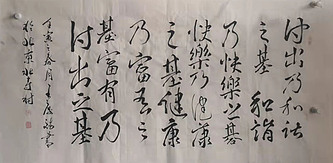 付出乃和諧
之基 和諧
乃快樂之基
快樂乃健康
之基健康
乃富有之
基富有乃
付出之基
於北京北村